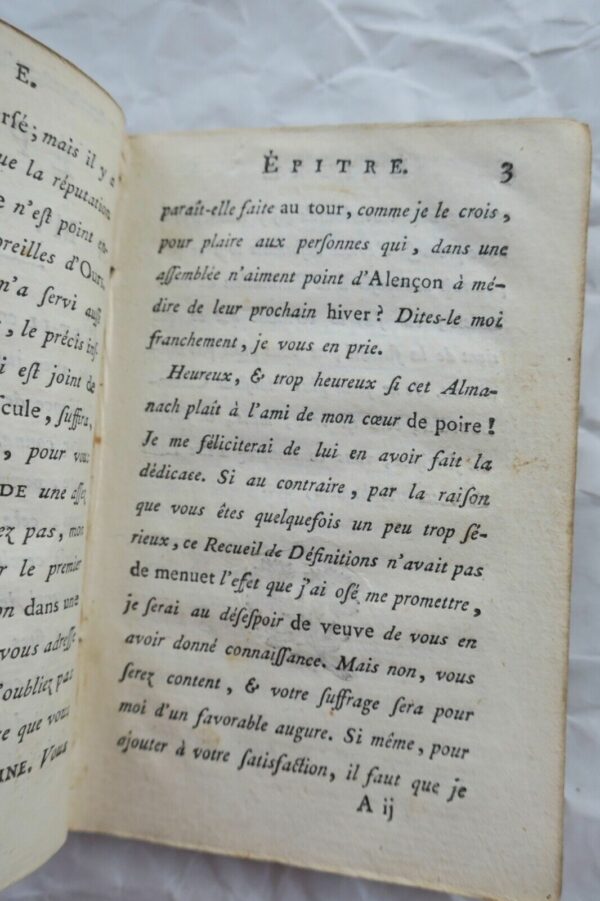 E.
rſé ; mais il y a
ue la réputation
e n'eſt point en-
oreilles d'Ours,
n'a ſervi auſſi
, le précis inſ-
i eſt joint de
ſcule, ſuffira,
, pour vous
DE une aſſez
ez pas, mon
r le premier
on dans une
vous adreſſe,
'oubliez pas
re que vous
INE. Vous
ÉPITRE. 3
paraît-elle faite au tour, comme je le crois,
pour plaire aux perſonnes qui, dans une
aſſemblée n'aiment point d'Alençon à mé-
dire de leur prochain hiver ? Dites-le moi
franchement, je vous en prie.
Heureux, & trop heureux ſi cet Alma-
nach plaît à l'ami de mon cœur de poire !
Je me féliciterai de lui en avoir fait la
dédicace. Si au contraire, par la raiſon
que vous êtes quelquefois un peu trop ſé-
rieux, ce Recueil de Définitions n'avait pas
de menuet l'efet que j'ai oſé me promettre,
je ſerai au déſeſpoir de veuve de vous en
avoir donné connaiſſance. Mais non, vous
ſerez content, & votre ſuffrage ſera pour
moi d'un favorable augure. Si même, pour
ajouter à votre ſatisfaction, il faut que je
A ij